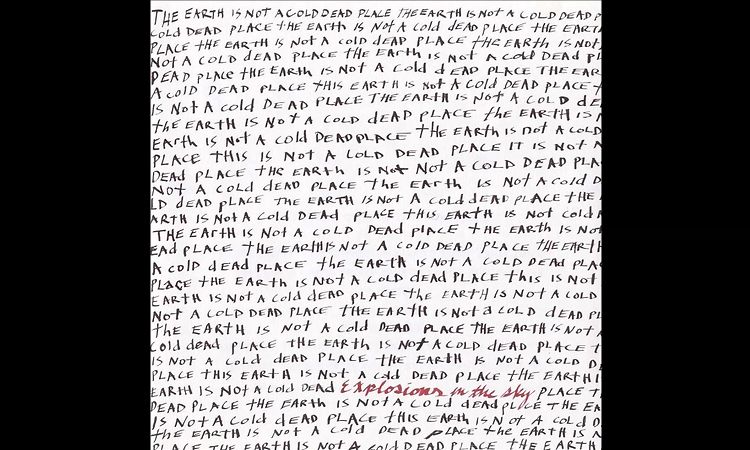 THE EARTH IS NOT A COLD DEAD PLACE THE EARTH IS NOT A COLD DEAD P
COLD DEAD PLACE THE EARTH IS NOT A COLD DEAD PLACE THE EARTH
PLACE THE EARTH IS NOT A COLD DEAD PLACE THE EARTH IS NOT
NOT A COLD DEAD PLACE THE EARTH IS NOT A COLD DEAD PL
DEAD PLACE THE EARTH IS NOT A COLD DEAD PLACE THE EAR
A COLD DEAD PLACE THIS EARTH IS NOT A COLD DEAD PLACE T
IS NOT A COLD DEAD PLACE THE EARTH IS NOT A COLD DE
THE EARTH IS NOT A COLD DEAD PLACE THE EARTH IS N
EARTH IS NOT A COLD DEAD PLACE THE EARTH IS NOT A COLD
PLACE THIS IS NOT A COLD DEAD PLACE IT IS NOT A
DEAD PLACE THE EARTH IS NOT NOT A COLD DEAD PLA
NOT A COLD DEAD PLACE THE EARTH IS NOT A COLD D
LD DEAD PLACE THE EARTH IS NOT A COLD DEAD PLACE THE
ARTH IS NOT A COLD DEAD PLACE THIS EARTH IS NOT COLD
THE EARTH IS NOT A COLD DEAD PLACE THE EARTH IS NO
EAD PLACE THE EARTH IS NOT A COLD DEAD PLACE THE EARTH
A COLD DEAD PLACE THE EARTH IS NOT A COLD DEAD PLA
PLACE THE EARTH IS NOT A COLD DEAD PLACE THIS IS NOT
EARTH IS NOT A COLD DEAD PLACE THE EARTH IS NOT A COLD
NOT A COLD DEAD PLACE THE EARTH IS NOT A COLD DEAD PL
THE EARTH IS NOT A COLD DEAD PLACE THE EARTH IS NOT A
COLD DEAD PLACE THE EARTH IS NOT A COLD DEAD PLACE T
IS NOT A COLD DEAD PLACE THE EARTH IS NOT A COLD D
PLACE THIS EARTH IS NOT A COLD DEAD PLACE THE EARTH I
EARTH IS NOT A COLD DEAD Explosions in the sky PLACE T
DEAD PLACE THE EARTH IS NOT A COLD DEAD PLACE THE EA
IS NOT A COLD DEAD PLACE THIS EARTH IS NOT A COLD D
THE EARTH IS NOT A COLD DEAD PLACE THE EARTH IS N
PLACE THE EARTH IS NOT A COLD DEAD PLACE THE EARTH